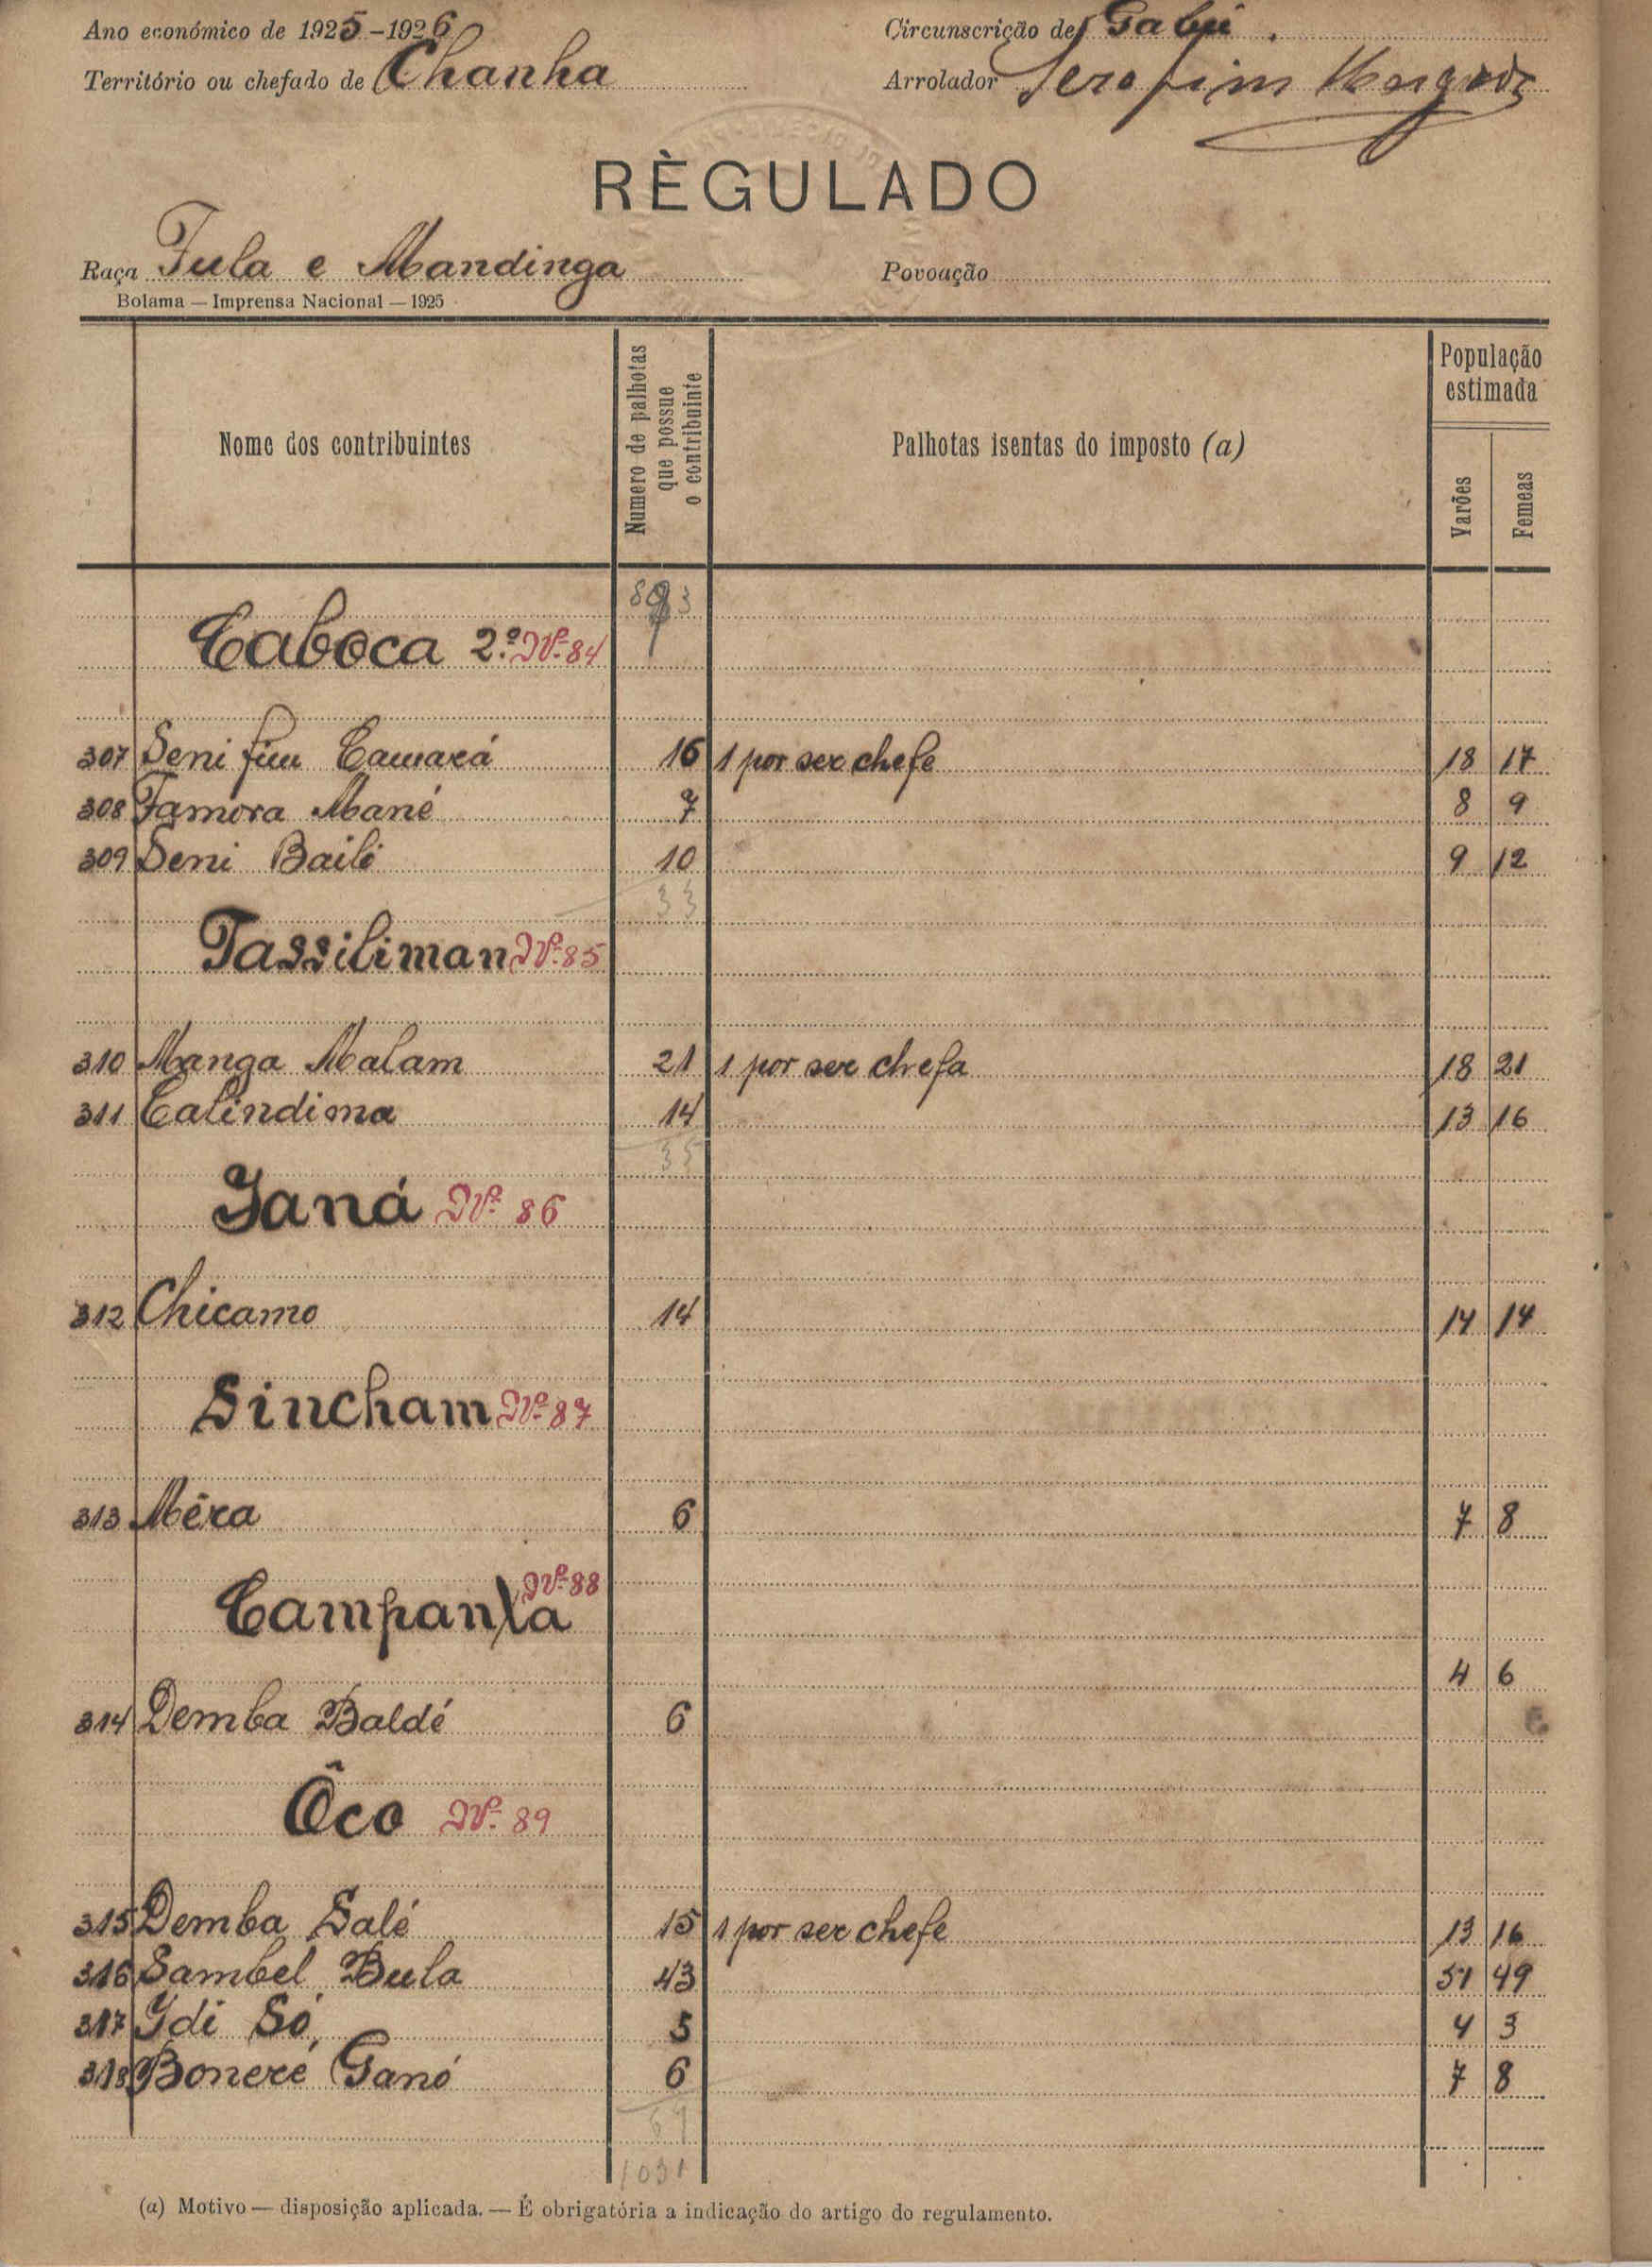 Ano económico de 1925-1926
Circunscrição de Gabú.
Território ou chefado de Chanha
Arrolador Serafim
RÈGULADO
Raça Fula e Mandinga
Povoação
Bolama — Imprensa Nacional — 1925
Nome dos contribuintes
Numero de palhotas que possue o contribuinte
Palhotas isentas do imposto (a)
População estimada
Varões
Femeas
Caboca 2.º Nº 84
307 Seni fim Camará 16 1 por ser chefe 18 17
308 Famora Mané 7 8 9
309 Seni Bailó 10 9 12
33
Tassiliman Nº 85
310 Manga Malam 21 1 por ser chefa 18 21
311 Calindima 14 13 16
35
Janá Nº 86
312 Chicamo 14 14 14
Sincham Nº 87
313 Mêra 6 7 8
Nº 88
Campanxa
4 6
314 Demba Baldé 6
Ôco Nº 89
315 Demba Salé 15 1 por ser chefe 13 16
316 Sambel Bula 43 51 49
317 Idi Só 5 4 3
318 Boneré Ganó 6 7 8
69
1031
(a) Motivo — disposição aplicada. — É obrigatória a indicação do artigo do regulamento.